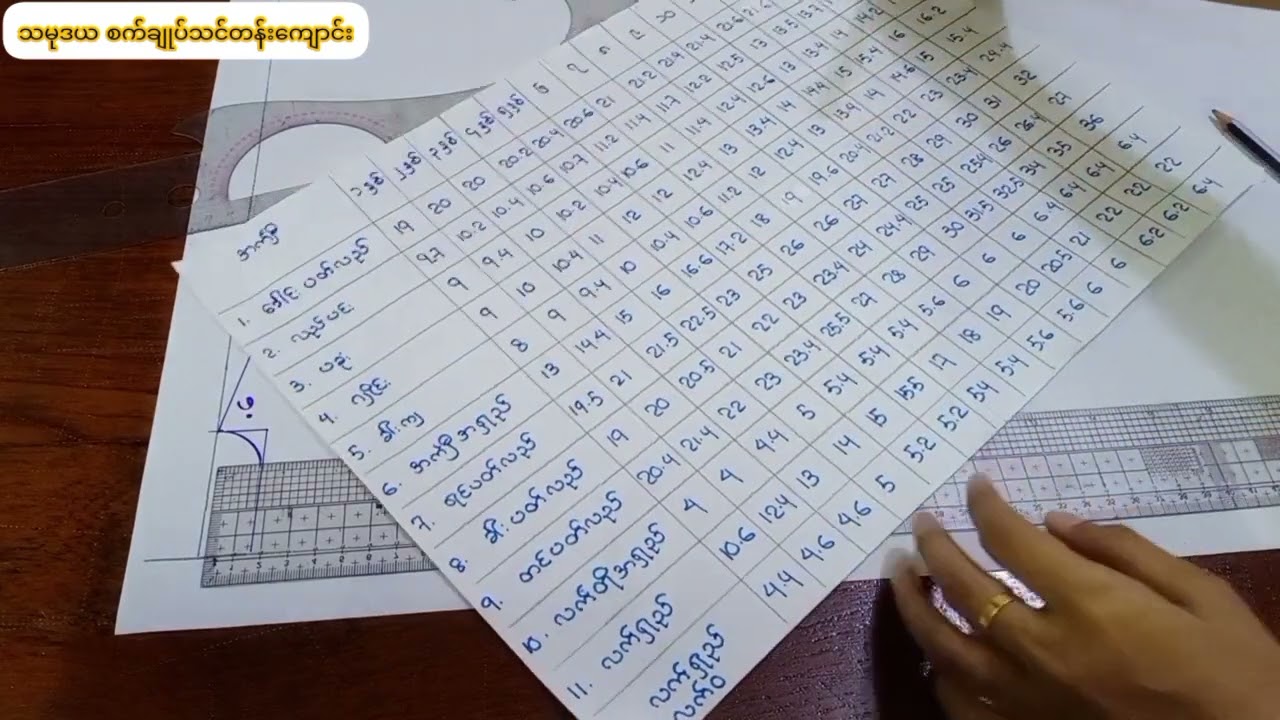 သမုဒယ စက်ချုပ်သင်တန်းကျောင်း
အင်္ကျီ ၁နှစ် ၂နှစ် ၃နှစ် ၄နှစ် ၅နှစ် ၆ ၇ ၈ ၉ ၁၀
1. ခေါင်းပတ်လည် 19 20 20 20.2 20.4 20.6 21 21.2 21.4 21.4 21.6
2. လည်ပင်း 9.7 10.2 10.4 10.6 10.7 11.2 11.4 11.7 12.2 12.5 13 13.5 13.7
3. ပခုံး 9 9.4 10 10.2 10.4 10.6 11 11.4 12.4 12.6 13 13.4 14 14.2
4. ဂျိုင်း 9 10 10.4 11 12 12 12.4 13 13.4 14 14.4 15 15.4 16 16.2
5. ခါးကျ 8 9 9.4 10 10.4 10.6 11.2 12 12.4 13 13.4 14 14.6 15 15.4
6. အင်္ကျီအရှည် 13 14.4 15 16 16.6 17.2 18 19 19.6 20.4 21.2 22 23 23.4 24.4
7. ရင်ပတ်လည် 19.5 21 21.5 22.5 23 25 26 26 27 27 28 29 30 31 32
8. ခါးပတ်လည် 19 20 20.5 21 22 23 23.4 24 24.4 25 25 25.4 26 26.4 27
9. တင်ပတ်လည် 20.4 21.4 22 23 23.4 25.5 27 28 29 30 31.5 32.5 34 35 36
10. လက်တိုအရှည် 4 4 4.4 5 5.4 5.4 5.4 5.6 6 6 6 6.4 6.4 6.4 6.4
11. လက်ရှည် 10.6 12.4 13 14 15 15.5 17 18 19 20 20.5 21 22 22 22
လက်ရှည် လက်ဝ 4.4 4.6 4.6 5 5.2 5.2 5.4 5.4 5.6 5.6 6 6 6.2 6.2 6.4